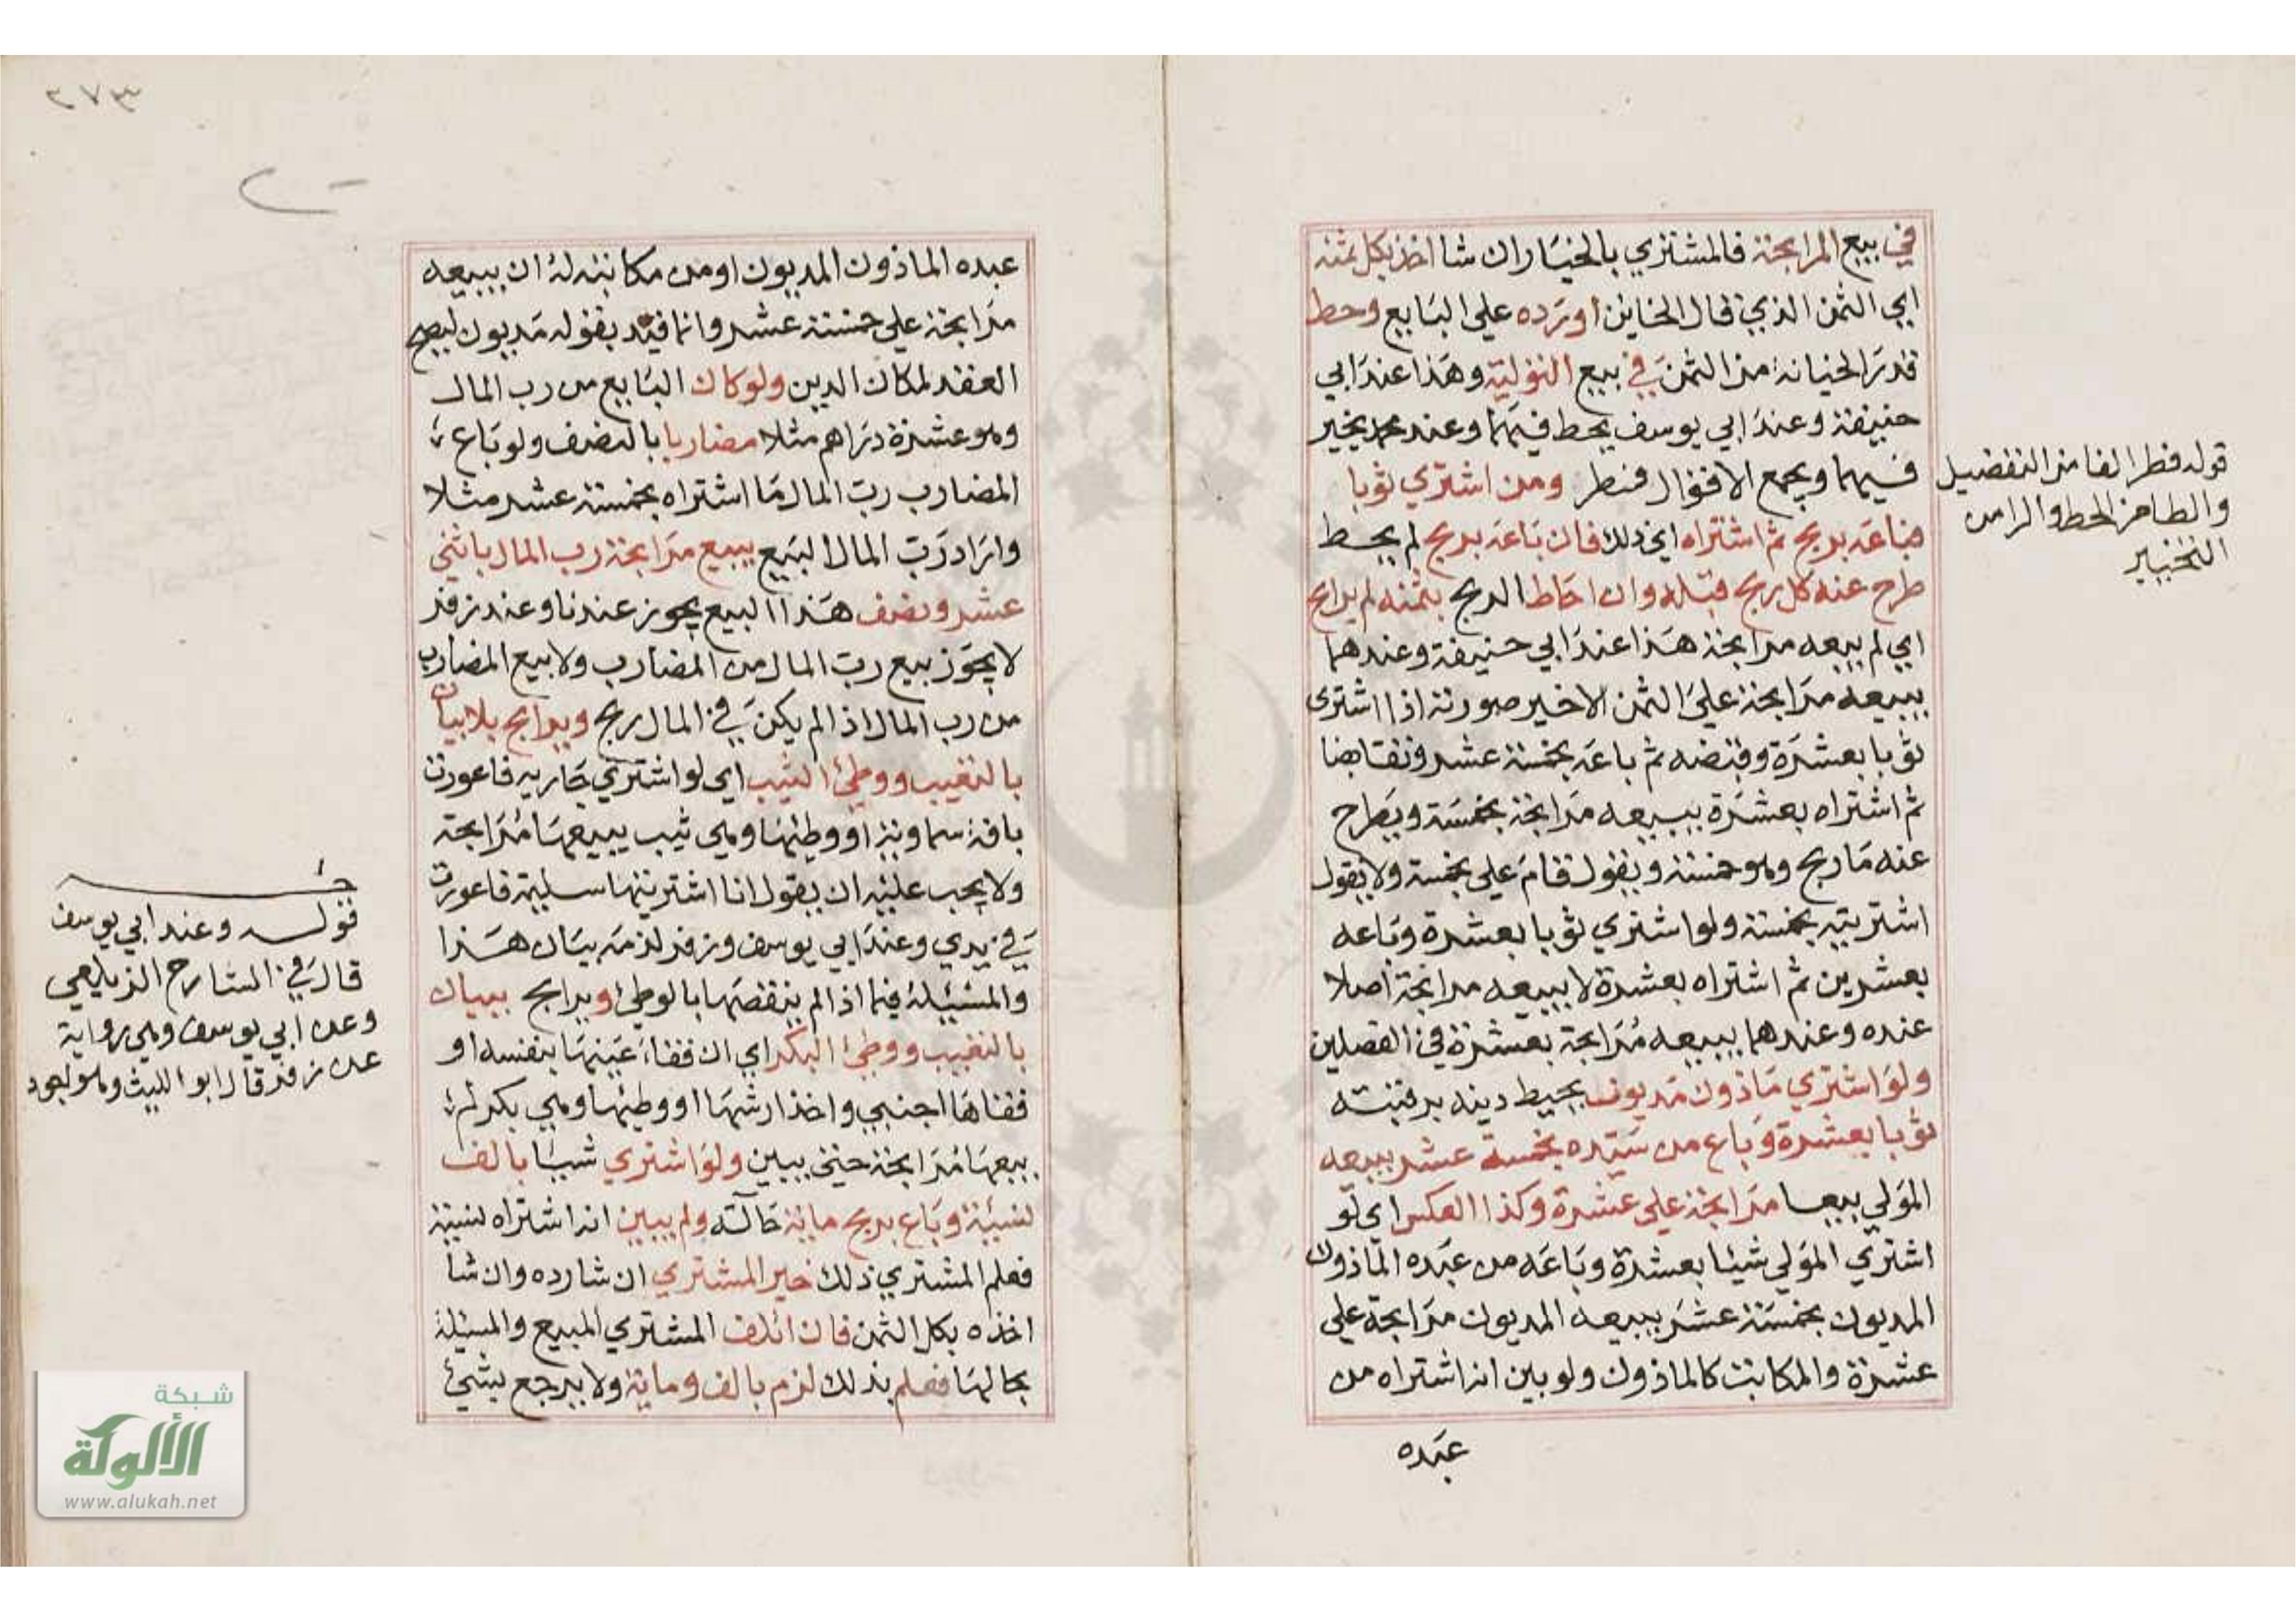 في بيع المرابحة فالمشتري بالخيار ان شا اخذ بكل ثمنه
اي الثمن الذي قال الخاين او يرده علي البايع وحط
قدر الخيانة من الثمن في بيع التولية وهذا عند ابي
حنيفة وعند ابي يوسف يحط فيهما وعند محمد يخير
فيهما ويجمع الاقوال فطر ومن اشتري ثوبا
فباعه بربح ثم اشتراه اي ذلك فان باعه بربح لم يحط
طرح عنه كل ربح قبله وان احاط الربح بثمنه لم يرابح
اي لم يبيعه مرابحة هذا عند ابي حنيفة وعندهما
يبيعه مرابحة علي الثمن الاخير صورته اذا اشتري
ثوبا بعشرة وقبضه ثم باعه بخمسة عشر وتقابضا
ثم اشتراه بعشرة يبيعه مرابحة بخمسة ويطرح
عنه ما ربح وهو خمسة ويقول قام علي بخمسة ولا يقول
اشتريته بخمسة ولو اشتري ثوبا بعشرة وباعه
بعشرين ثم اشتراه بعشرة لا يبيعه مرابحة اصلا
عنده وعندهما يبيعه مرابحة بعشرة في الفصلين
ولو اشتري ماذون مديون يحيط دينه برقبته
ثوبا بعشرة وباع من سيده بخمسة عشر يبيعه
المولي بيعا مرابحة علي عشرة وكذا العكس اي لو
اشتري المولي شيئا بعشرة وباعه من عبده الماذون
المديون بخمسة عشر يبيعه المديون مرابحة علي
عشرة والمكاتب كالماذون ولو بين انه اشتراه من
عبده
قوله فطر الفا من التفضيل
والطا من الحط والرا من
التخيير
٢٧٣
عبده الماذون المديون او من مكاتبه له ان يبيعه
مرابحة علي خمسة عشر وانما قيد بقوله مديون ليصح
العقد لمكان الدين ولو كان البايع من رب المال
وهو عشرة دراهم مثلا مضاربا بالنصف ولو باع
المضارب رب المال ما اشتراه بخمسة عشر مثلا
واراد رب المال البيع يبيع مرابحة رب المال باثني
عشر ونصف هذا البيع يجوز عندنا وعند زفر
لا يجوز بيع رب المال من المضارب ولا بيع المضارب
من رب المال اذا لم يكن في المال ربح ويرابح بلا بيان
بالتعييب ووطئ الثيب اي لو اشتري جارية فاعورت
بافة سماوية او وطئها وهي ثيب يبيعها مرابحة
ولا يجب عليه ان يقول انا اشتريتها سليمة فاعورت
في يدي وعند ابي يوسف وزفر لزمه بيان هذا
والمسئلة فيما اذا لم ينقصها بالوطئ ويرابح ببيان
بالتعييب ووطئ البكر اي ان فقاء عينها بنفسه او
فقاها اجنبي واخذ ارشها او وطئها وهي بكر لم
يبيعها مرابحة حتي يبين ولو اشتري شيئا بالف
نسيئة وباع بربح ماية حالة ولم يبين انه اشتراه نسيئة
فعلم المشتري ذلك خير المشتري ان شا رده وان شا
اخذه بكل الثمن فان اتلف المشتري المبيع والمسئلة
بحالها فعلم بذلك لزم بالف وماية ولا يرجع بشئ
قوله وعند ابي يوسف
قال في الشارح الزيلعي
وعن ابي يوسف وهي رواية
عن زفر قال ابو الليث وهو اجود
شبكة
الألوكة
www.alukah.net